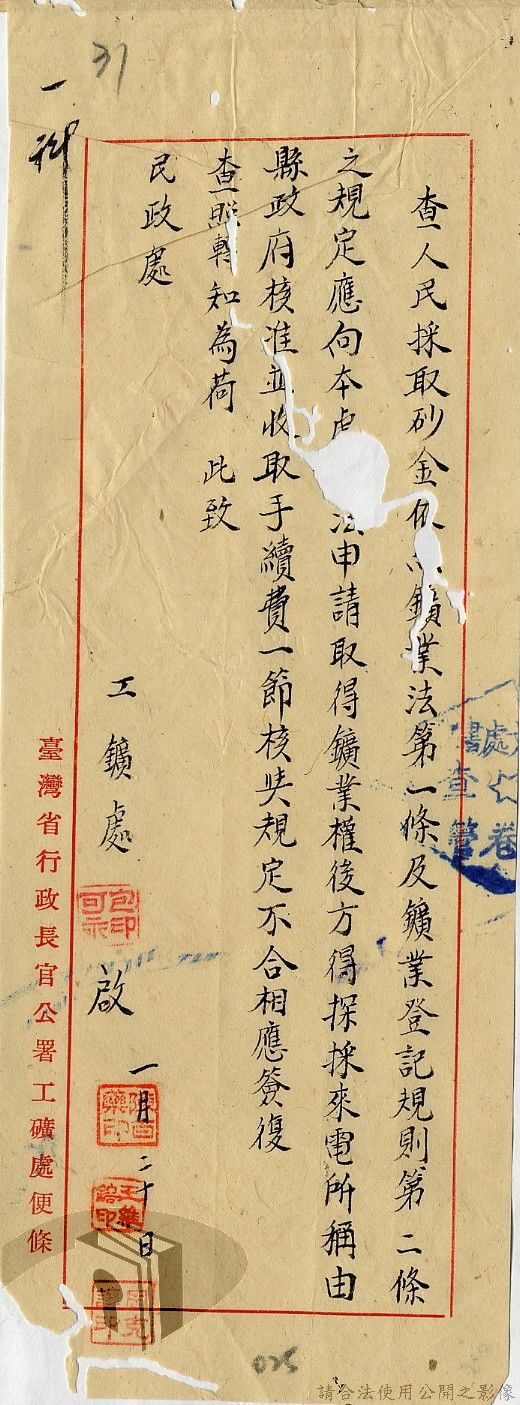 37
一科
查人民採取砂金依 鑛業法第一條及鑛業登記規則第二條
之規定應向本處 法申請取得鑛業權後方得探採來電所稱由
縣政府核准並收取手續費一節核與規定不合相應簽復
查照轉知為荷 此致
民政處
工鑛處 啟 一月二十日
臺灣省行政長官公署工礦處便條
處
查
卷
管
025
請合法使用公開之影像